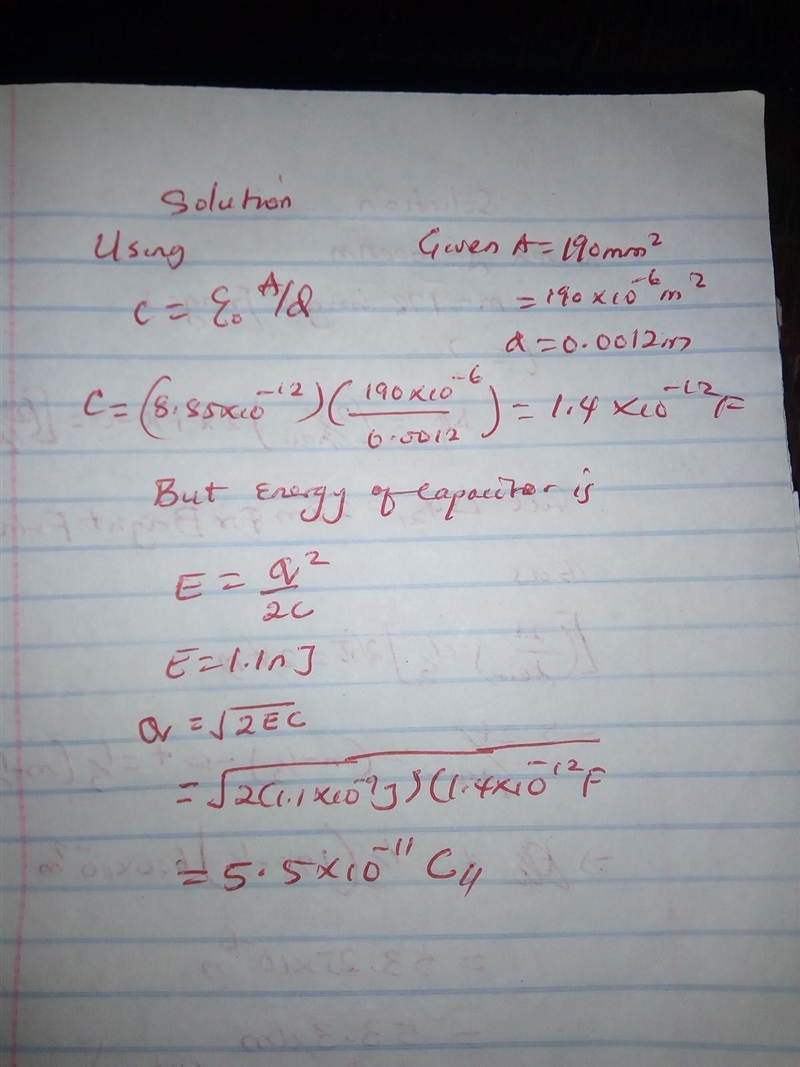 Solution
Using Given A = 190mm²
C = ε₀ A/d = 190 x 10⁻⁶ m²
d = 0.0012m
C = (8.85x10⁻¹²) (190x10⁻⁶/0.0012) = 1.4 x10⁻¹² F
But Energy of Capacitor is
E = q²/2C
E = 1.1nJ
q = √2EC
= √2(1.1x10⁻⁹J)(1.4x10⁻¹²F
= 5.5x10⁻¹¹ C//